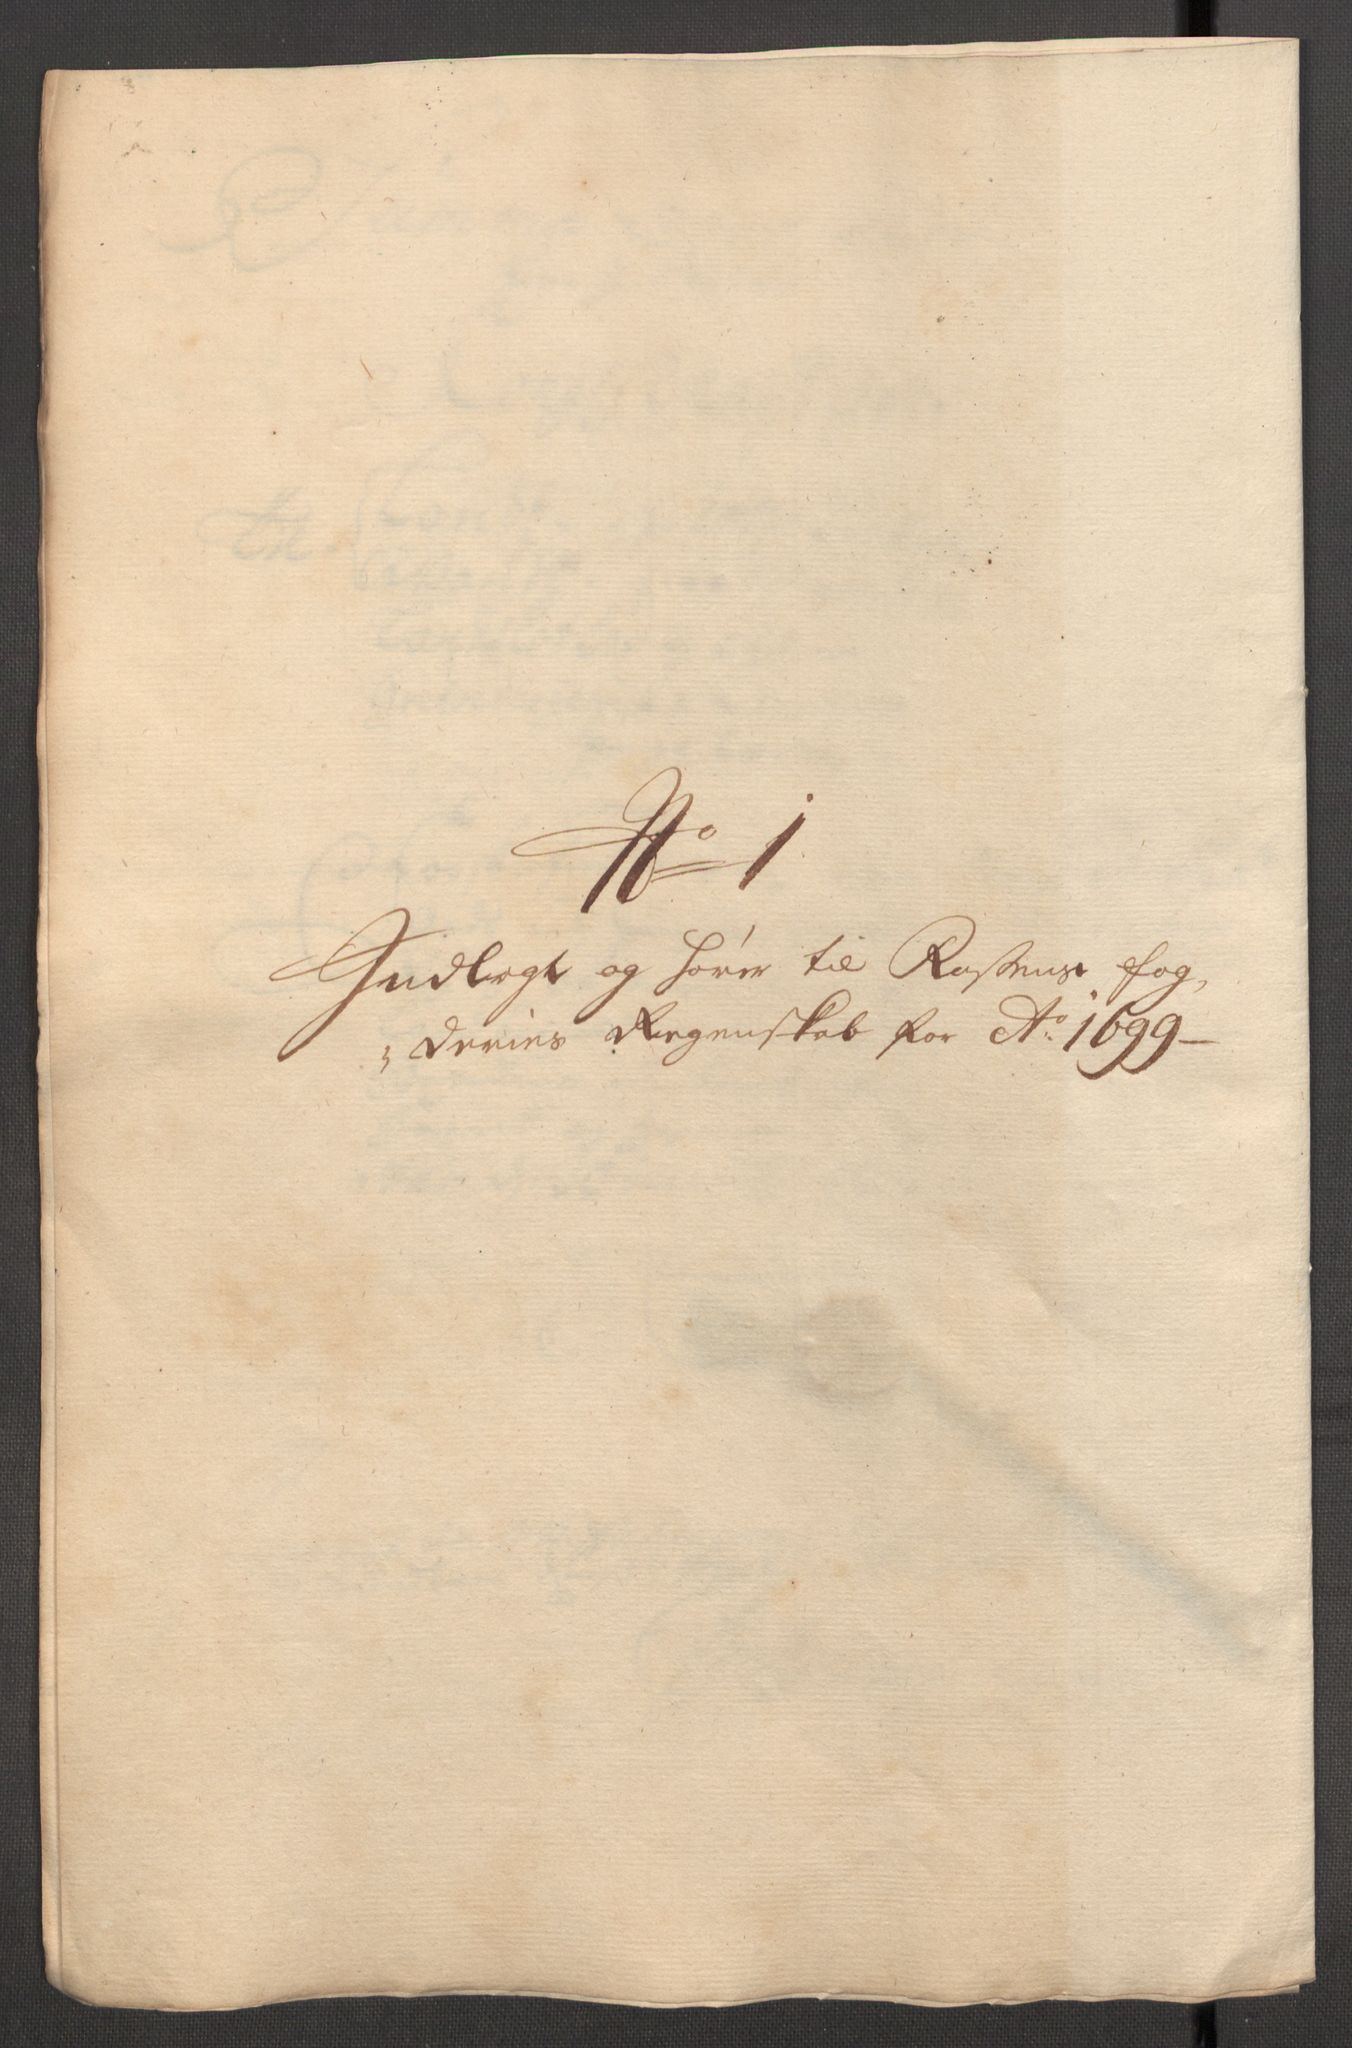 No 1
Indlegt og hører til Raffens fog,
deries Regenskab for Ao 1699